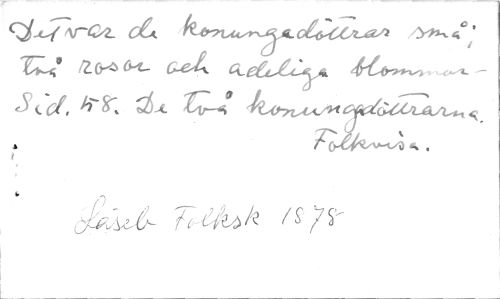 Det var de konungadöttrar små;
två rosor och adeliga blommor -
Sid. 58. De två konungadöttrarna.
Folkvisa.
Läseb Folksk 1878